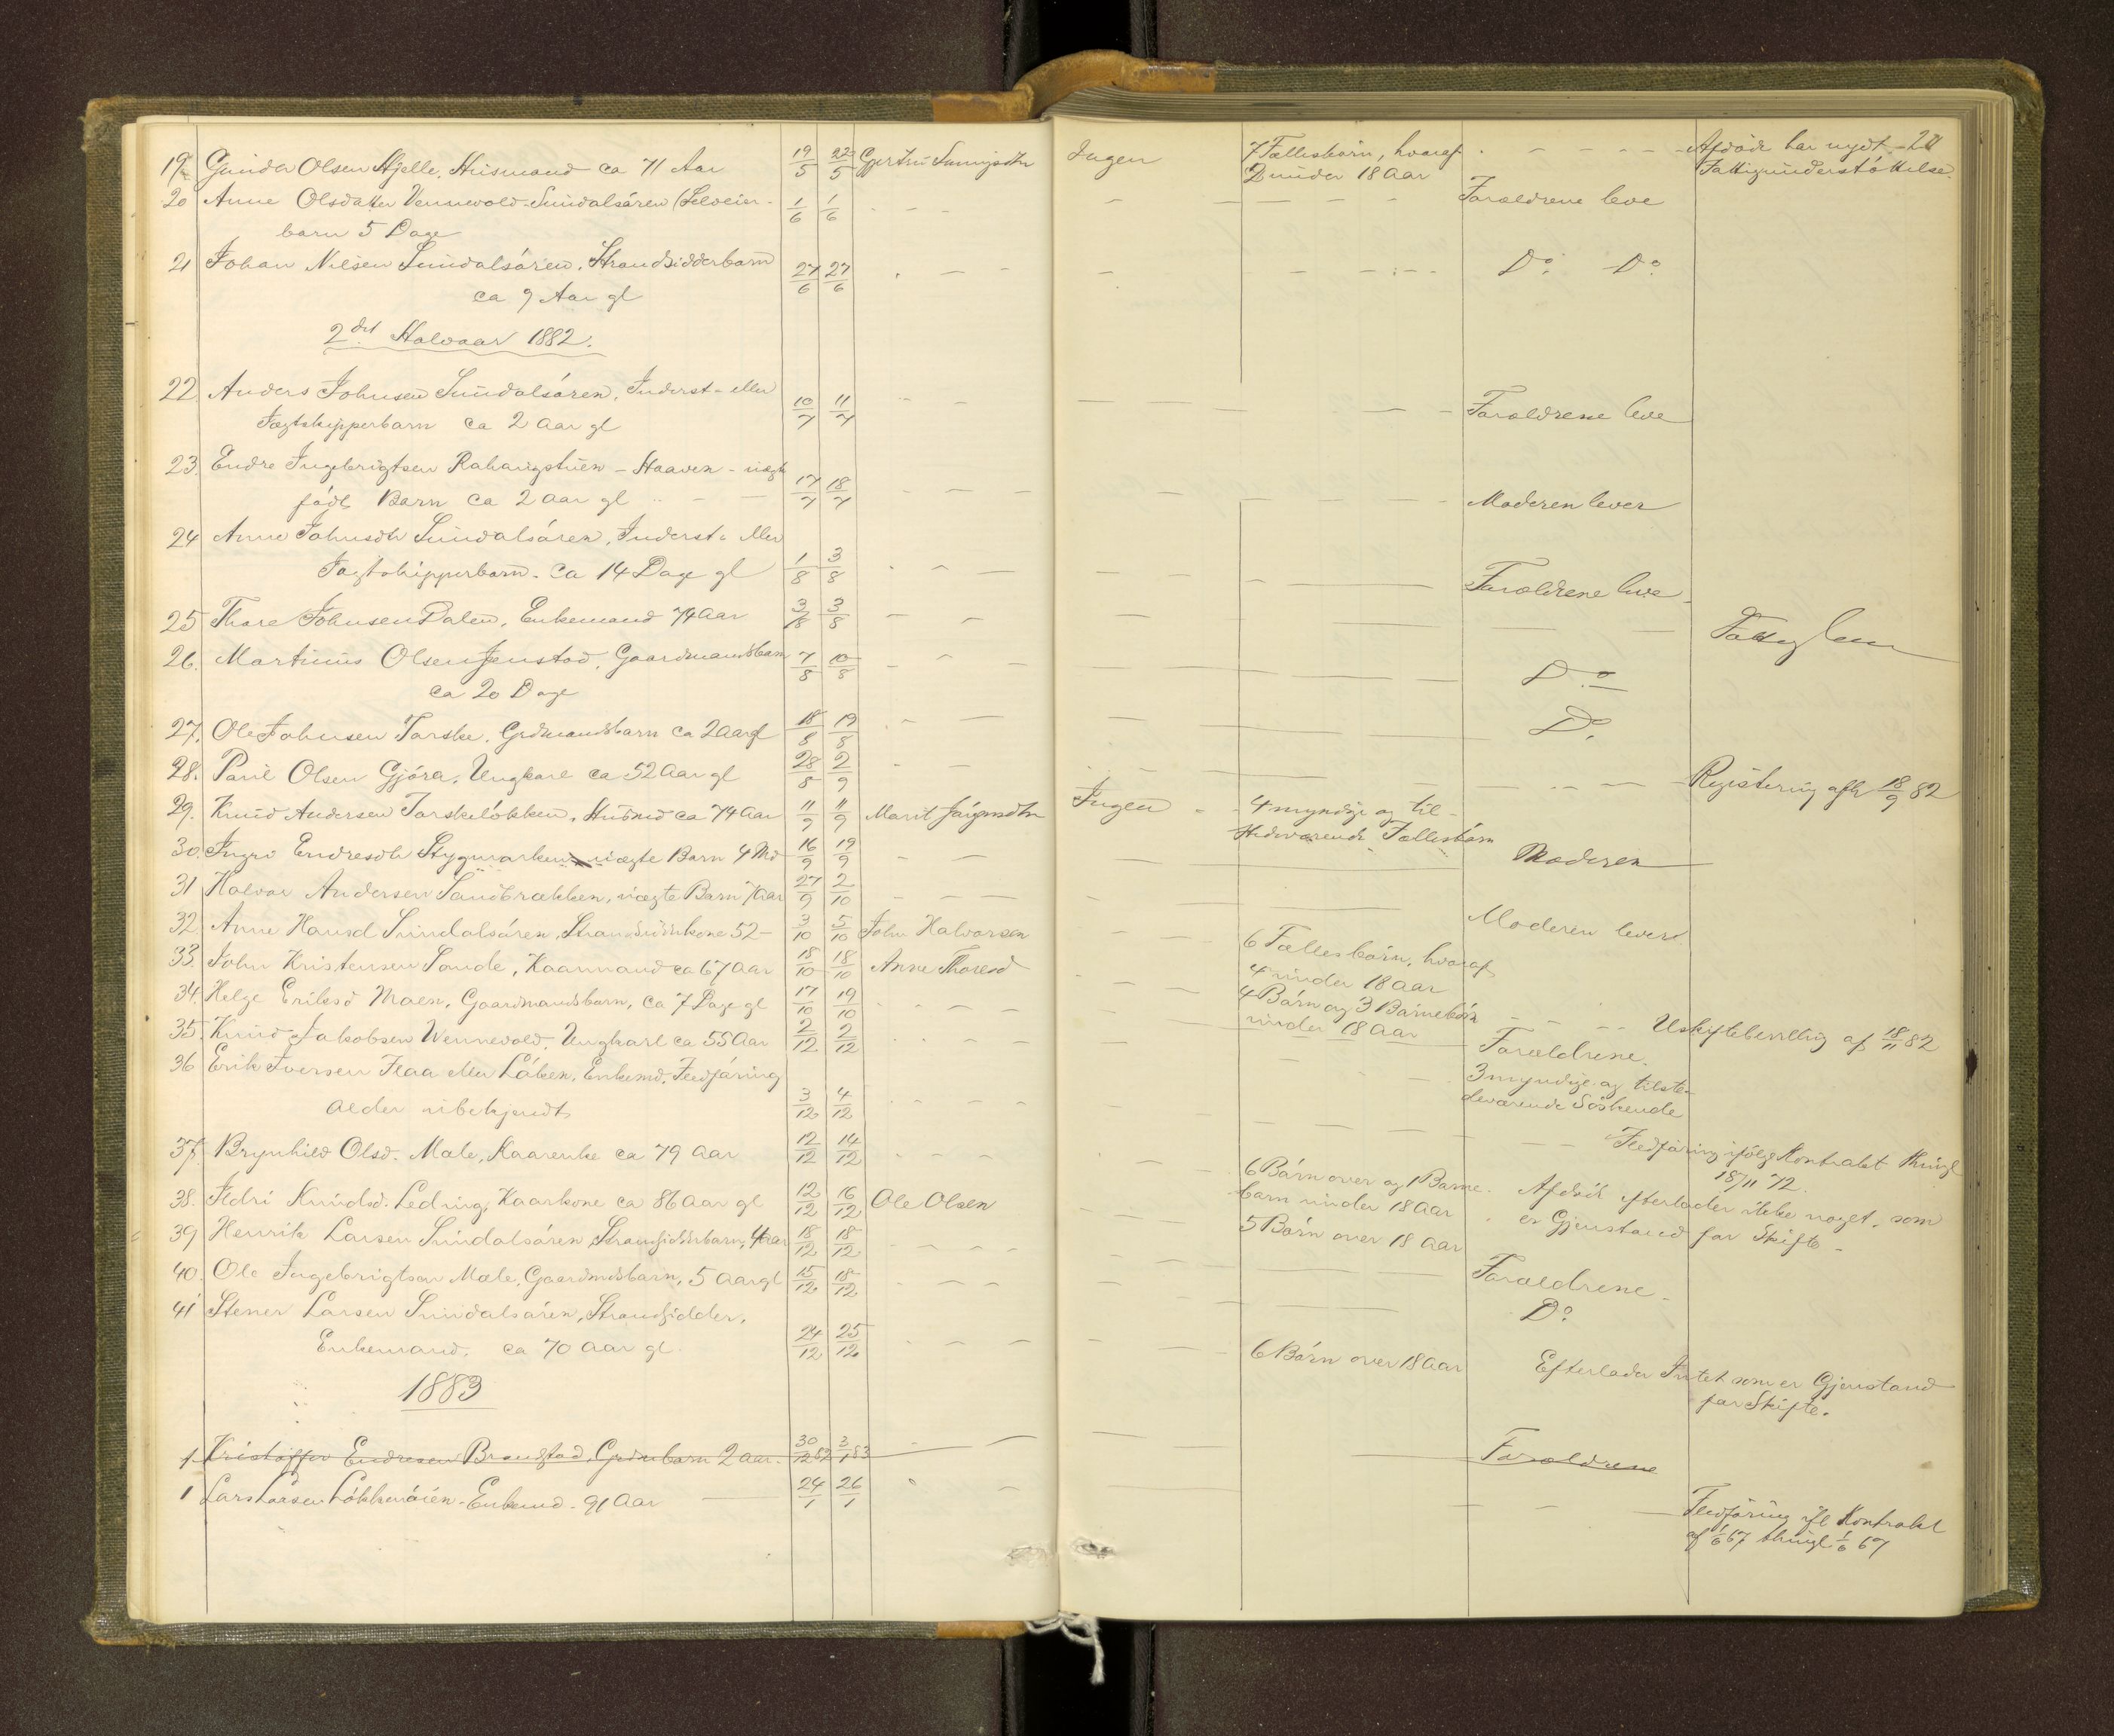 19 Gunder Olsen Hjelle, Husmand ca 71 Aar 19/5 22/5 Gjertru Ingen 7 Fællesbørn, hvoraf Afdøde har nydt
2 under 18 Aar Fattigunderstøttelse.
20 Anne Olsdatter Vennevold-Sundalsøren (Selveier- 1/6 1/6 Forældrene leve
barn 5 Dage
21 Johan Nilsen Sundalsøren, Strandsidderbarn 27/6 27/6 Do. Do.
ca 9 Aar gl
2det Halvaar 1882.
22 Anders Johnsen Sundalsøren, Inderst- eller 10/7 11/7 Forældrene leve
Jægtskipperbarn ca 2 Aar gl
23. Endre Ingebrigtsen - Haaven - uægte 17/7 18/7
født Barn ca 2 Aar gl Moderen lever
24 Anne Johnsdtr Sundalsøren, Inderst- eller
Jagtskipperbarn. ca 14 Dage gl 1/8 3/8 Forældrene leve
25 Thore Johnsen Dalen, Enkemand 74 Aar 3/8 3/8
26. Martinus Olsen Jenstad, Gaardmandsbarn 7/8 10/8 Do
ca 20 Dage
27. Ole Johnsen Torske, Grdmandsbarn ca 2 Aar gl 18/8 19/8 Do.
28. Paul Olsen Gjøra, Ungkarl ca 52 Aar gl 28/8 2/9 Registering afh 18/9 82
29. Knud Andersen Torskeløkken, Husmd ca 74 Aar 11/9 11/9 Marit Ingen 4 myndige og til-
stedeværende Fællesbørn
30. Ingri Endresdtr Stygmarken uægte Barn 4 Md 16/9 19/9 Moderen
31 Halvor Andersen Sandbrækken, uægte Barn 7 Aar 27/9 2/10 Moderen lever
32. Anne Hansd Sundalsøren, Strandsidderkone 52 - 3/10 5/10 John Halvorsen 6 Fællesbørn, hvoraf
4 under 18 Aar
33. John Kristensen Sande, Kaarmand ca 67 Aar 18/10 18/10 Anne Thoresd 4 Børn og 3 Børnebørn Uskiftebevilling af 18/11 82
under 18 Aar
34. Helge Eriksd Moen, Gaardmandsbarn, ca 7 Dage gl 17/10 19/10 Forældrene.
35. Knud Jakobsen Vennevold, Ungkarl ca 55 Aar 2/12 2/12 3 myndige og tilste-
deværende Søskende
36 Erik Iversen Flaa eller Løken, Enkemd. Fledføring
Alder ubekjendt 3/12 4/12 Fledføring ifølge Kontrakt thingl
18/11 72.
37. Brynhild Olsd. Mæle, Kaarenke ca 79 Aar 12/12 14/12 6 Børn over og 1 Barne- Afdøde efterlader ikke noget, som
barn under 18 Aar er Gjenstand for Skifte -
38. Ildri Knudsd. Leding, Kaarkone ca 86 Aar gl 12/12 16/12 Ole Olsen 5 Børn over 18 Aar
39 Henrik Larsen Sundalsøren, Strandsidderbarn, 4 Aar 18/12 18/12 Forældrene
40. Ole Ingebrigtsen Mæle, Gaardmdsbarn, 5 Aar gl 15/12 18/12 Do
41 Stener Larsen Sundalsøren, Strandsidder,
Enkemand, ca 70 Aar gl. 24/12 25/12 6 Børn over 18 Aar Efterlader Intet som er Gjenstand
for Skifte.
1883
1. Kristoffer Endresen Brandstad, Grdmbarn 2 Aar. 30/12 82 3/1 83 Forældrene
1 Lars Larsen Løkkenøien - Enkemd - 91 Aar 24/1 26/1 Fledføring ifl Kontrakt
af 1/6 67 thingl. 1/6 67